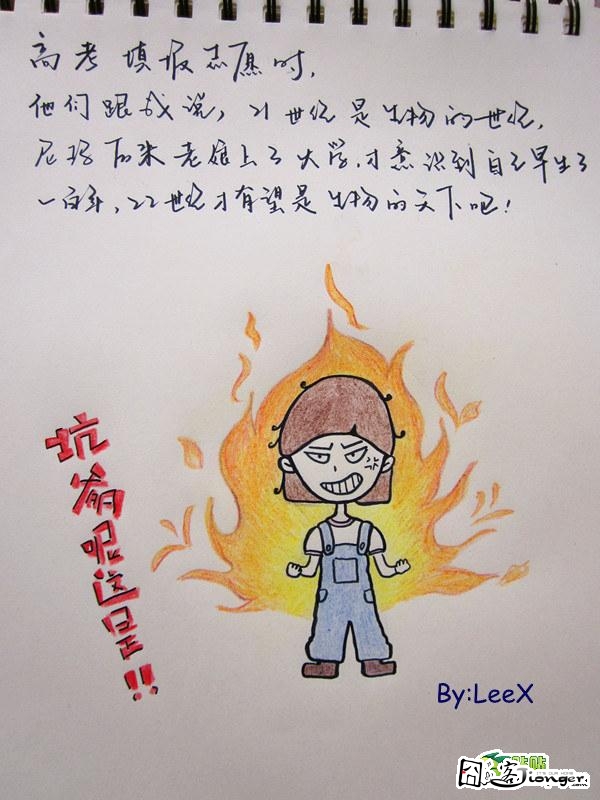 高考填报志愿时,
他们跟我说, 21世纪是生物的世纪,
尼玛后来老娘上了大学,才意识到自己早生了
一百年, 22世纪才有望是生物的天下吧!
坑爹呢这是!!
By:LeeX
囧客
Jionger.com